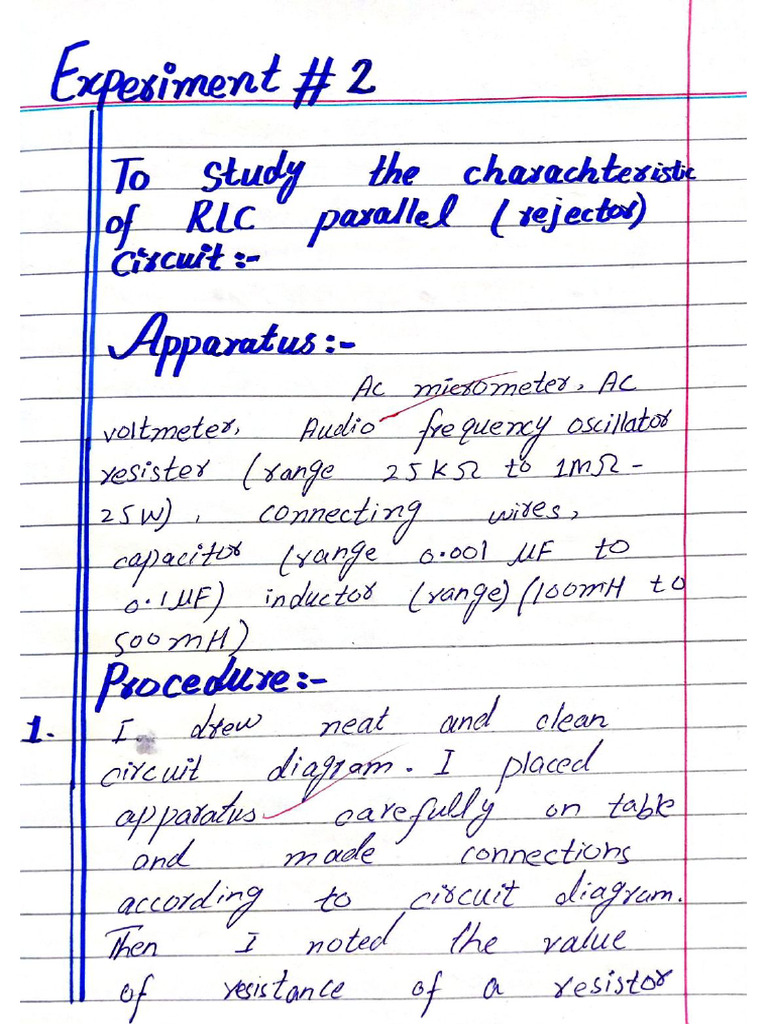 Experiment # 2
To study the charachteristic
of RLC parallel (rejector)
circuit:-
Apparatus:-
Ac micrometer, AC
voltmeter, Audio frequency oscillator
resister (range 25KΩ to 1MΩ -
25W), connecting wires,
capacitor (range 0.001 µF to
0.1µF) inductor (range) (100mH to
500mH)
Procedure:-
1. I drew neat and clean
circuit diagram. I placed
apparatus carefully on table
and made connections
according to circuit diagram.
Then I noted the value
of resistance of a resistor